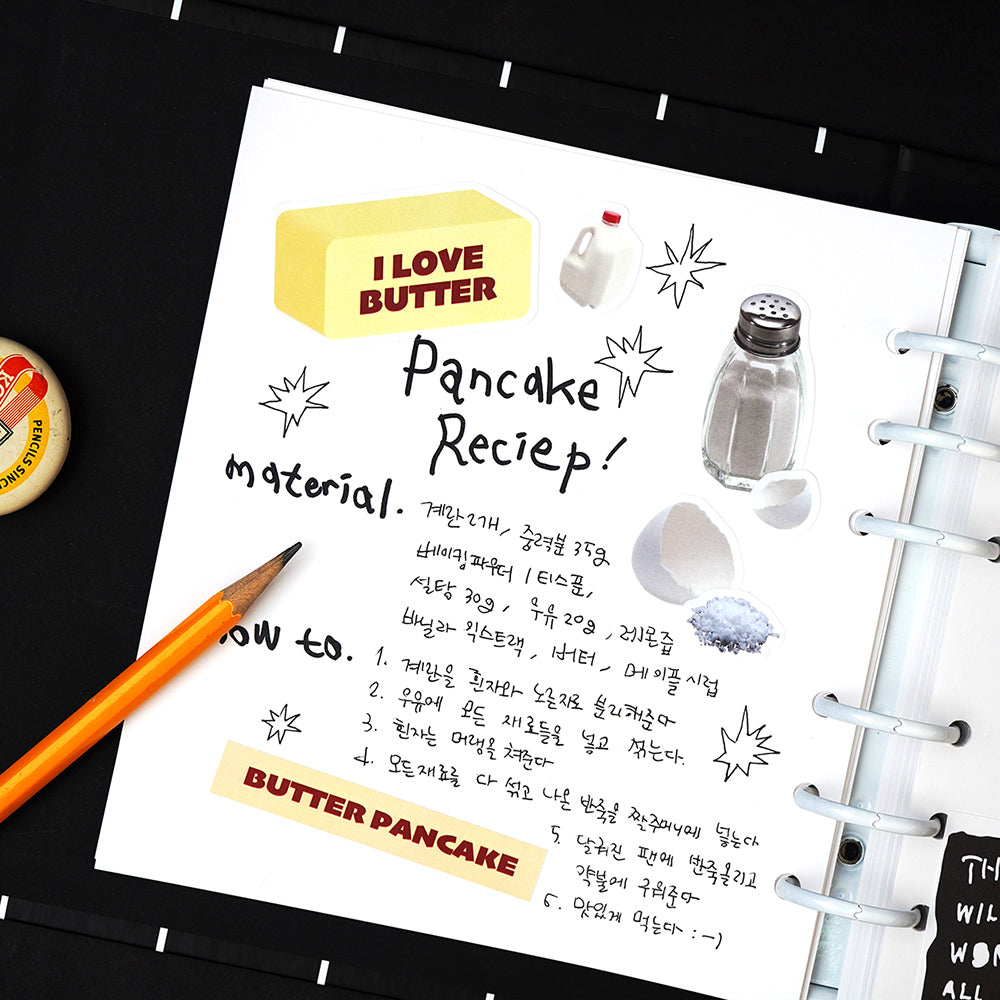 I LOVE
BUTTER
Pancake
Reciep!
material.
계란 2개, 중력분 35g
베이킹파우더 1티스푼,
설탕 30g, 우유 20g, 레몬즙
바닐라 익스트랙, 버터, 메이플시럽
how to.
1. 계란을 흰자와 노른자로 분리해준다
2. 우유에 모든 재료들을 넣고 섞는다.
3. 흰자는 머랭을 쳐준다
4. 모든재료를 다 섞고 나온 반죽을 짤주머니에 넣는다
5. 달궈진 팬에 반죽올리고
약불에 구워준다
6. 맛있게 먹는다 :-)
BUTTER PANCAKE
PENCILS SINC
TH
WIL
WOR
ALL